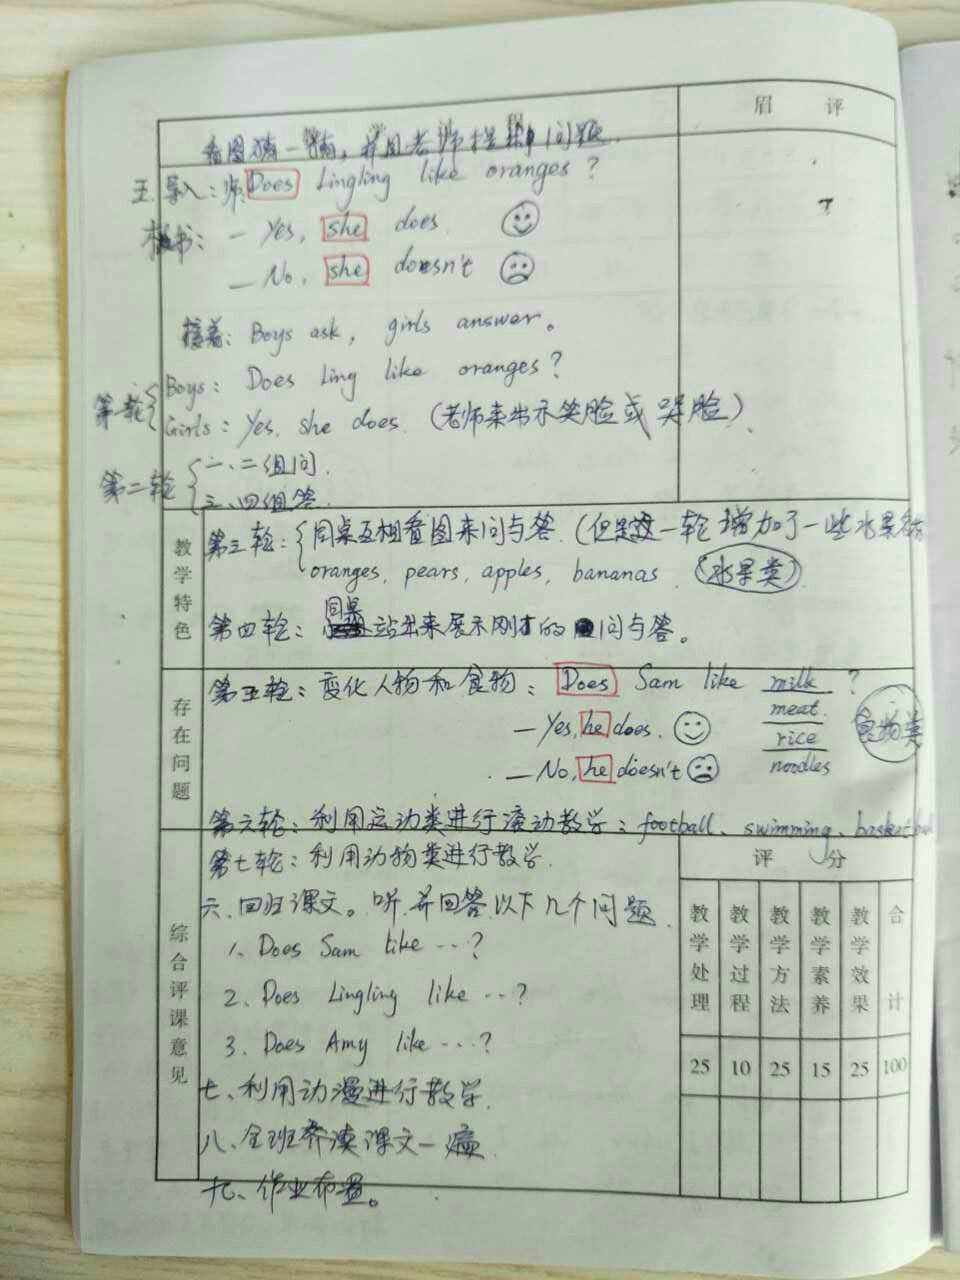 眉 评
看图猜一猜，并用老师提供问题.
五.导入：师. Does Lingling like oranges?
板书： — Yes, she does.
— No, she doesn't
接着：Boys ask, girls answer。
第一轮 Boys: Does Ling like oranges?
Girls: Yes, she does. (老师来出示笑脸或哭脸)、
第二轮 一、二组问.
三、四组答.
教学特色
第三轮：同桌互相看图来问与答.(但是这一轮增加了一些水果名称
oranges, pears, apples, bananas. (水果类)
第四轮：同桌站出来展示刚才的问与答。
存在问题
第五轮：变化人物和食物：Does Sam like milk ?
meat.
— Yes, he does.
rice
食物类
— No, he doesn't
noodles
第六轮：利用运动类进行滚动教学：football、swimming、basketball
综合评课意见
第七轮：利用动物类进行教学.
评 分
六、回归课文。听.并回答以下几个问题.
1. Does Sam like …?
2. Does Lingling like …?
3. Does Amy like …?
七、利用动漫进行教学.
八、全班齐读课文一遍
九、作业布置。
教学处理 教学过程 教学方法 教学素养 教学效果 合计
25 10 25 15 25 100